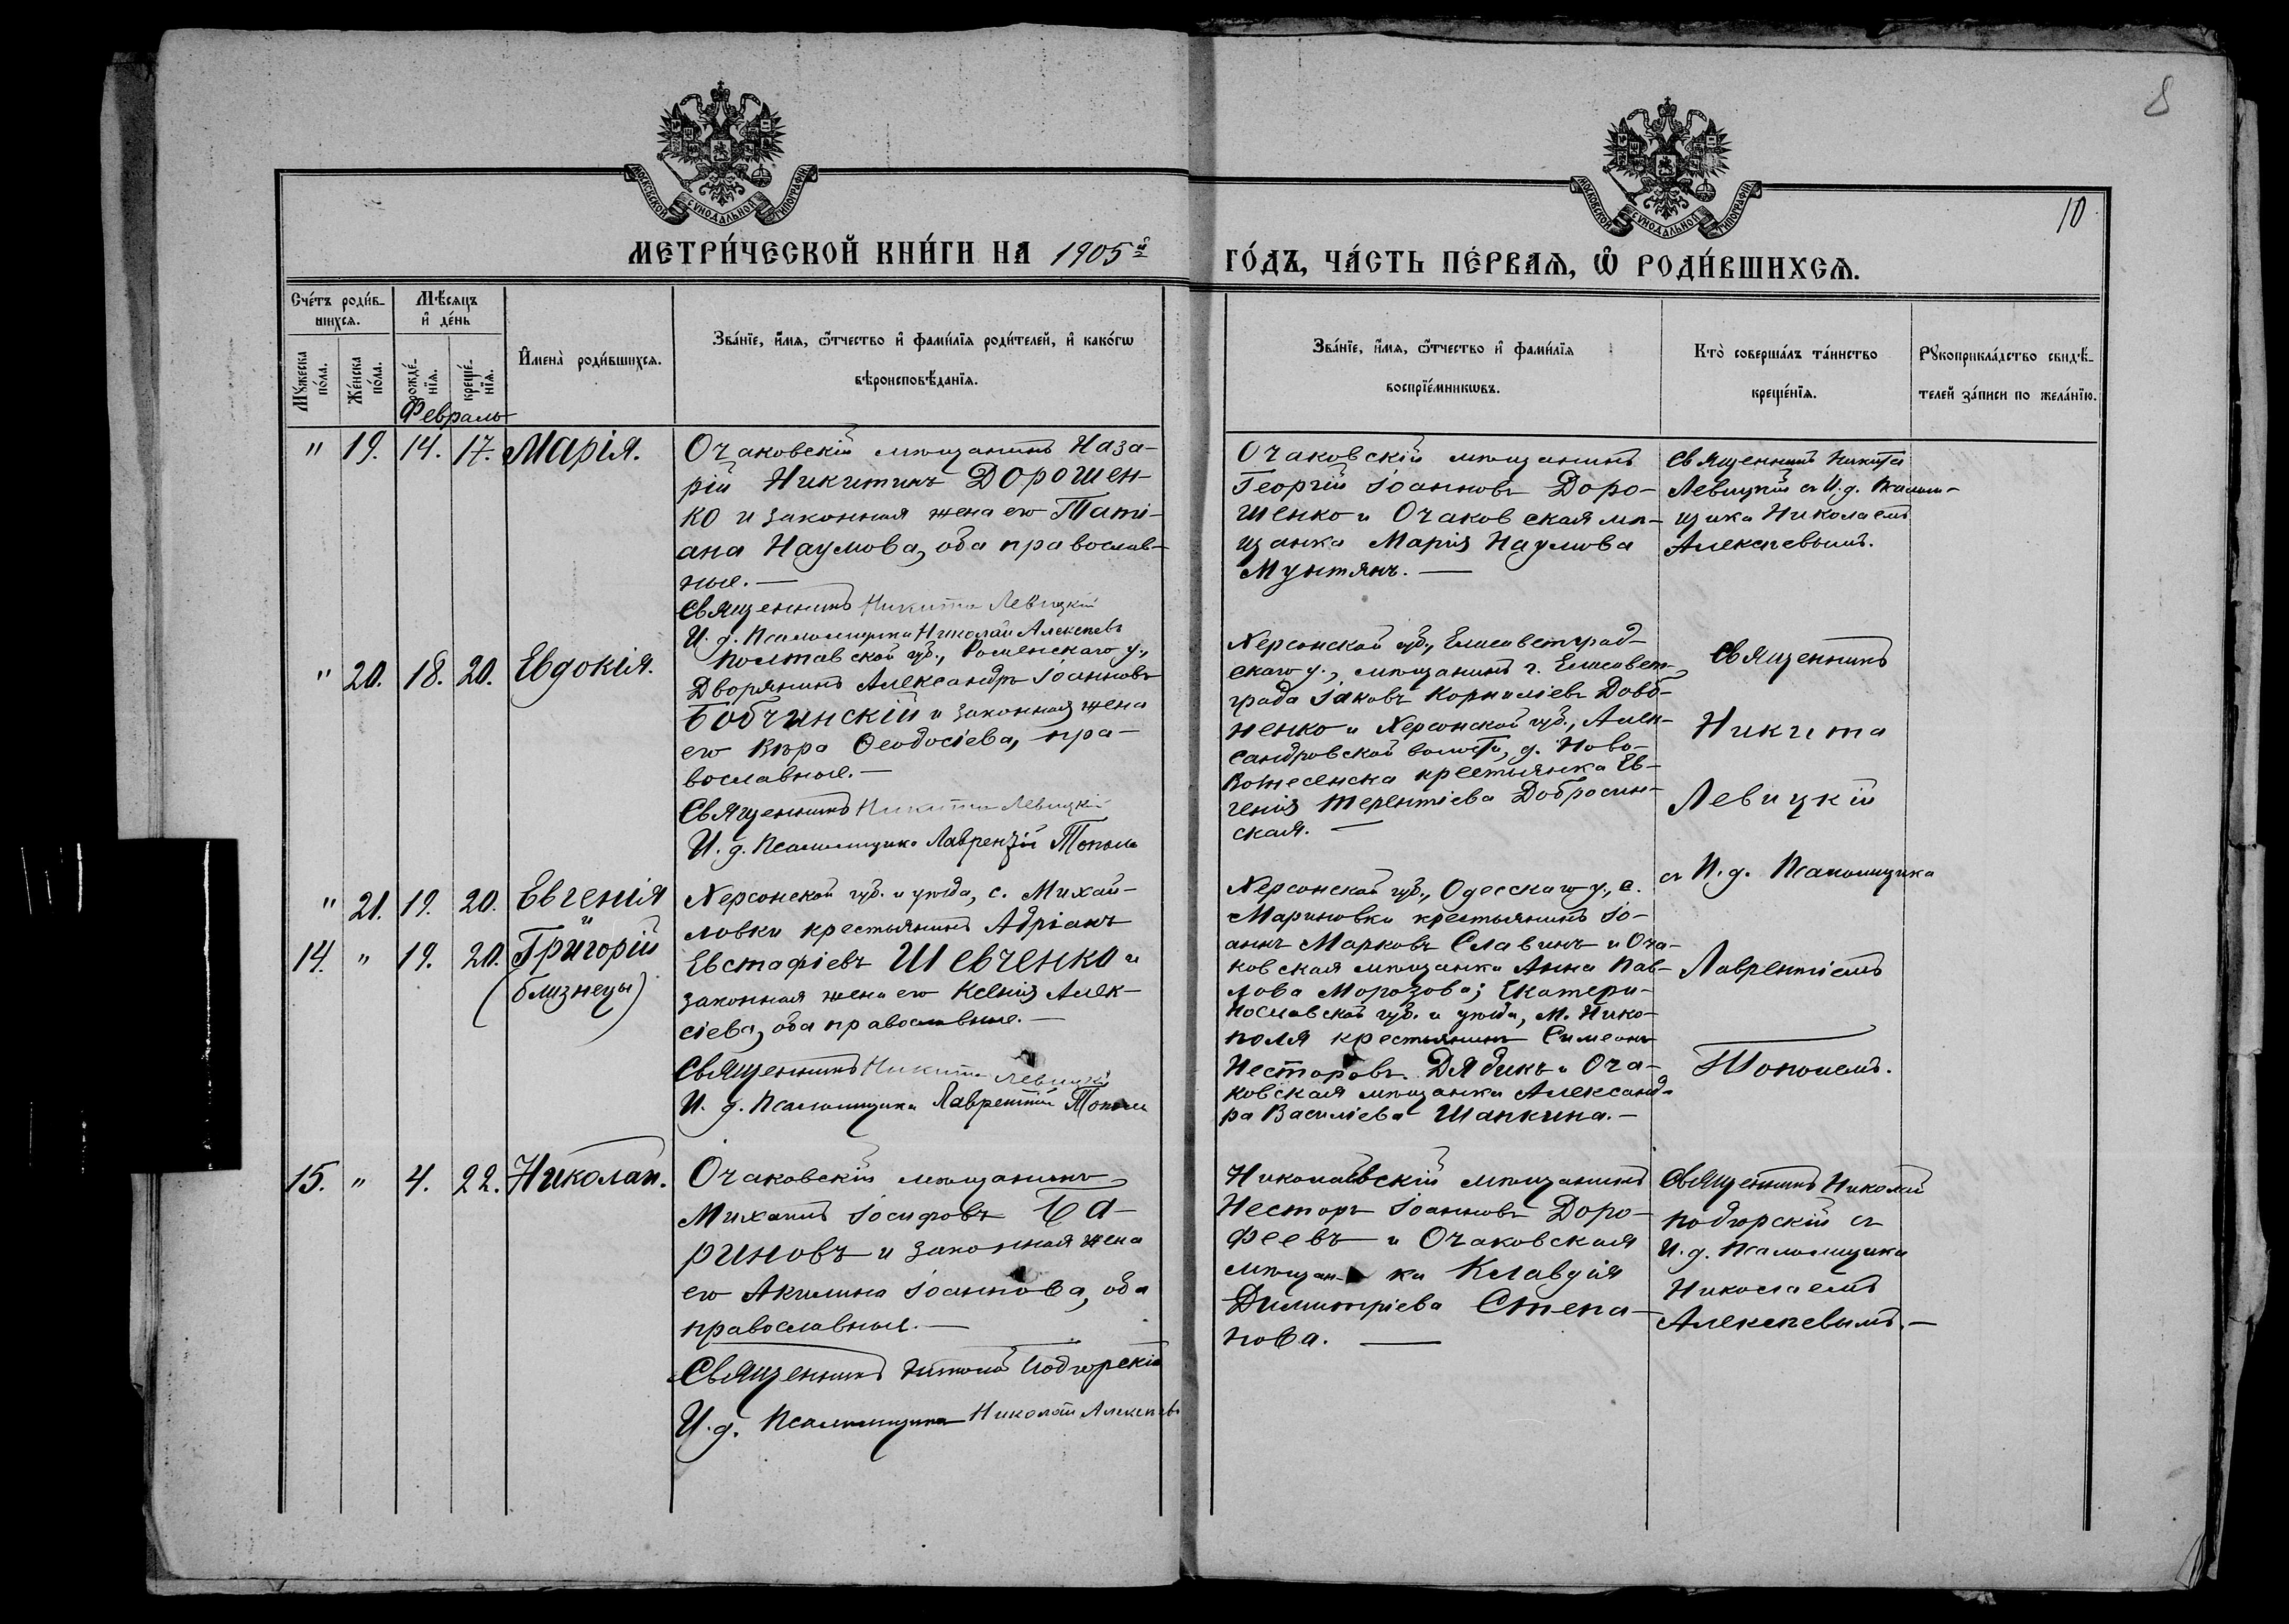 8
10
МОСКОВСКОЙ СѴНОДАЛЬНОЙ ТИПОГРАФІИ
МОСКОВСКОЙ СѴНОДАЛЬНОЙ ТИПОГРАФІИ
МЕТРИ́ЧЕСКОЙ КНИ́ГИ НА 1905й
ГО́ДЪ, ЧА́СТЬ ПЕ́РВАѦ, Ѽ РОДИ́ВШИХСѦ.
Сче́тъ роди́в-
шихсѧ.
Мѣ́сѧцъ
и҆ де́нь
Мꙋ́жеска
по́ла.
Же́нска
по́ла.
рожде́-
нїѧ.
креще́-
нїѧ.
Февраль
И҆мена̀ роди́вшихсѧ.
Зва́нїе, и҆́мѧ, ѻ҆́тчество и҆ фами́лїѧ роди́телей, и҆ како́гѡ
вѣроисповѣ́данїѧ.
Зва́нїе, и҆́мѧ, ѻ҆́тчество и҆ фами́лїѧ
воспрїе́мникѡвъ.
Кто̀ соверша́лъ та́инство
креще́нїѧ.
Рꙋкоприкла́дство свидѣ́-
телей за́писи по жела́нїю.
" 19. 14. 17. Марія.
Очаковскій мѣщанинъ Наза-
рій Никитинъ Дорошен-
ко и законная жена его Таті-
ана Наумова, оба православ-
ные.—
Священникъ Никита Левицкій
И. д. Псаломщика Николай Алексѣевъ
Очаковскій мѣщанинъ
Георгій Іоанновъ Доро-
шенко и Очаковская мѣ-
щанка Марія Наумова
Мунтянъ.—
Священникъ Никита
Левицкій съ И. д. Псалом-
щика Николаемъ
Алексѣевымъ.
" 20. 18. 20. Евдокія.
Полтавской губ., Роменскаго у.,
Дворянинъ Александръ Іоанновъ
Бобчинскій и законная жена
его Вѣра Ѳеодосіева, пра-
вославные.—
Священникъ Никита Левицкій
И. д. Псаломщика Лаврентій Тополь
Херсонской губ., Елисаветград-
скаго у., мѣщанинъ г. Елисавет-
града Іаковъ Корниліевъ Довб-
ненко и Херсонской губ., Алек-
сандровской волости, д. Ново-
Вознесенска крестьянка Ев-
генія Терентіева Добросин-
ская.—
Священникъ
Никита
Левицкій
съ И. д. Псаломщика
Лаврентіемъ
Тополемъ.
" 21. 19. 20. Евгенія
и
14. " 19. 20. Григорій
(близнецы)
Херсонской губ. и уѣзда, с. Михай-
ловки крестьянинъ Адріанъ
Евстафіевъ Шевченко и
законная жена его Ксенія Алек-
сіева, оба православные.—
Священникъ Никита Левицкій
И. д. Псаломщика Лаврентій Тополь
Херсонской губ., Одесскаго у., с.
Мариновки крестьянинъ Іо-
аннъ Марковъ Славинъ и Оча-
ковская мѣщанка Анна Пав-
лова Морозова; Екатери-
нославской губ. и уѣзда, м. Нико-
поля крестьянинъ Симеонъ
Несторовъ Дядикъ и Оча-
ковская мѣщанка Александ-
ра Василіева Шапкина.—
15. " 4. 22. Николай.
Очаковскій мѣщанинъ
Михаилъ Іосифовъ Ца-
риновъ и законная жена
его Акилина Іоаннова, оба
православные.—
Священникъ Николай Подгорскій
И. д. Псаломщика Николай Алексѣевъ
Николаевскій мѣщанинъ
Несторъ Іоанновъ Доро-
феевъ и Очаковская
мѣщан-ка Клавдія
Димитріева Степа-
нова.—
Священникъ Николай
Подгорскій съ
И. д. Псаломщика
Николаемъ
Алексѣевымъ.—